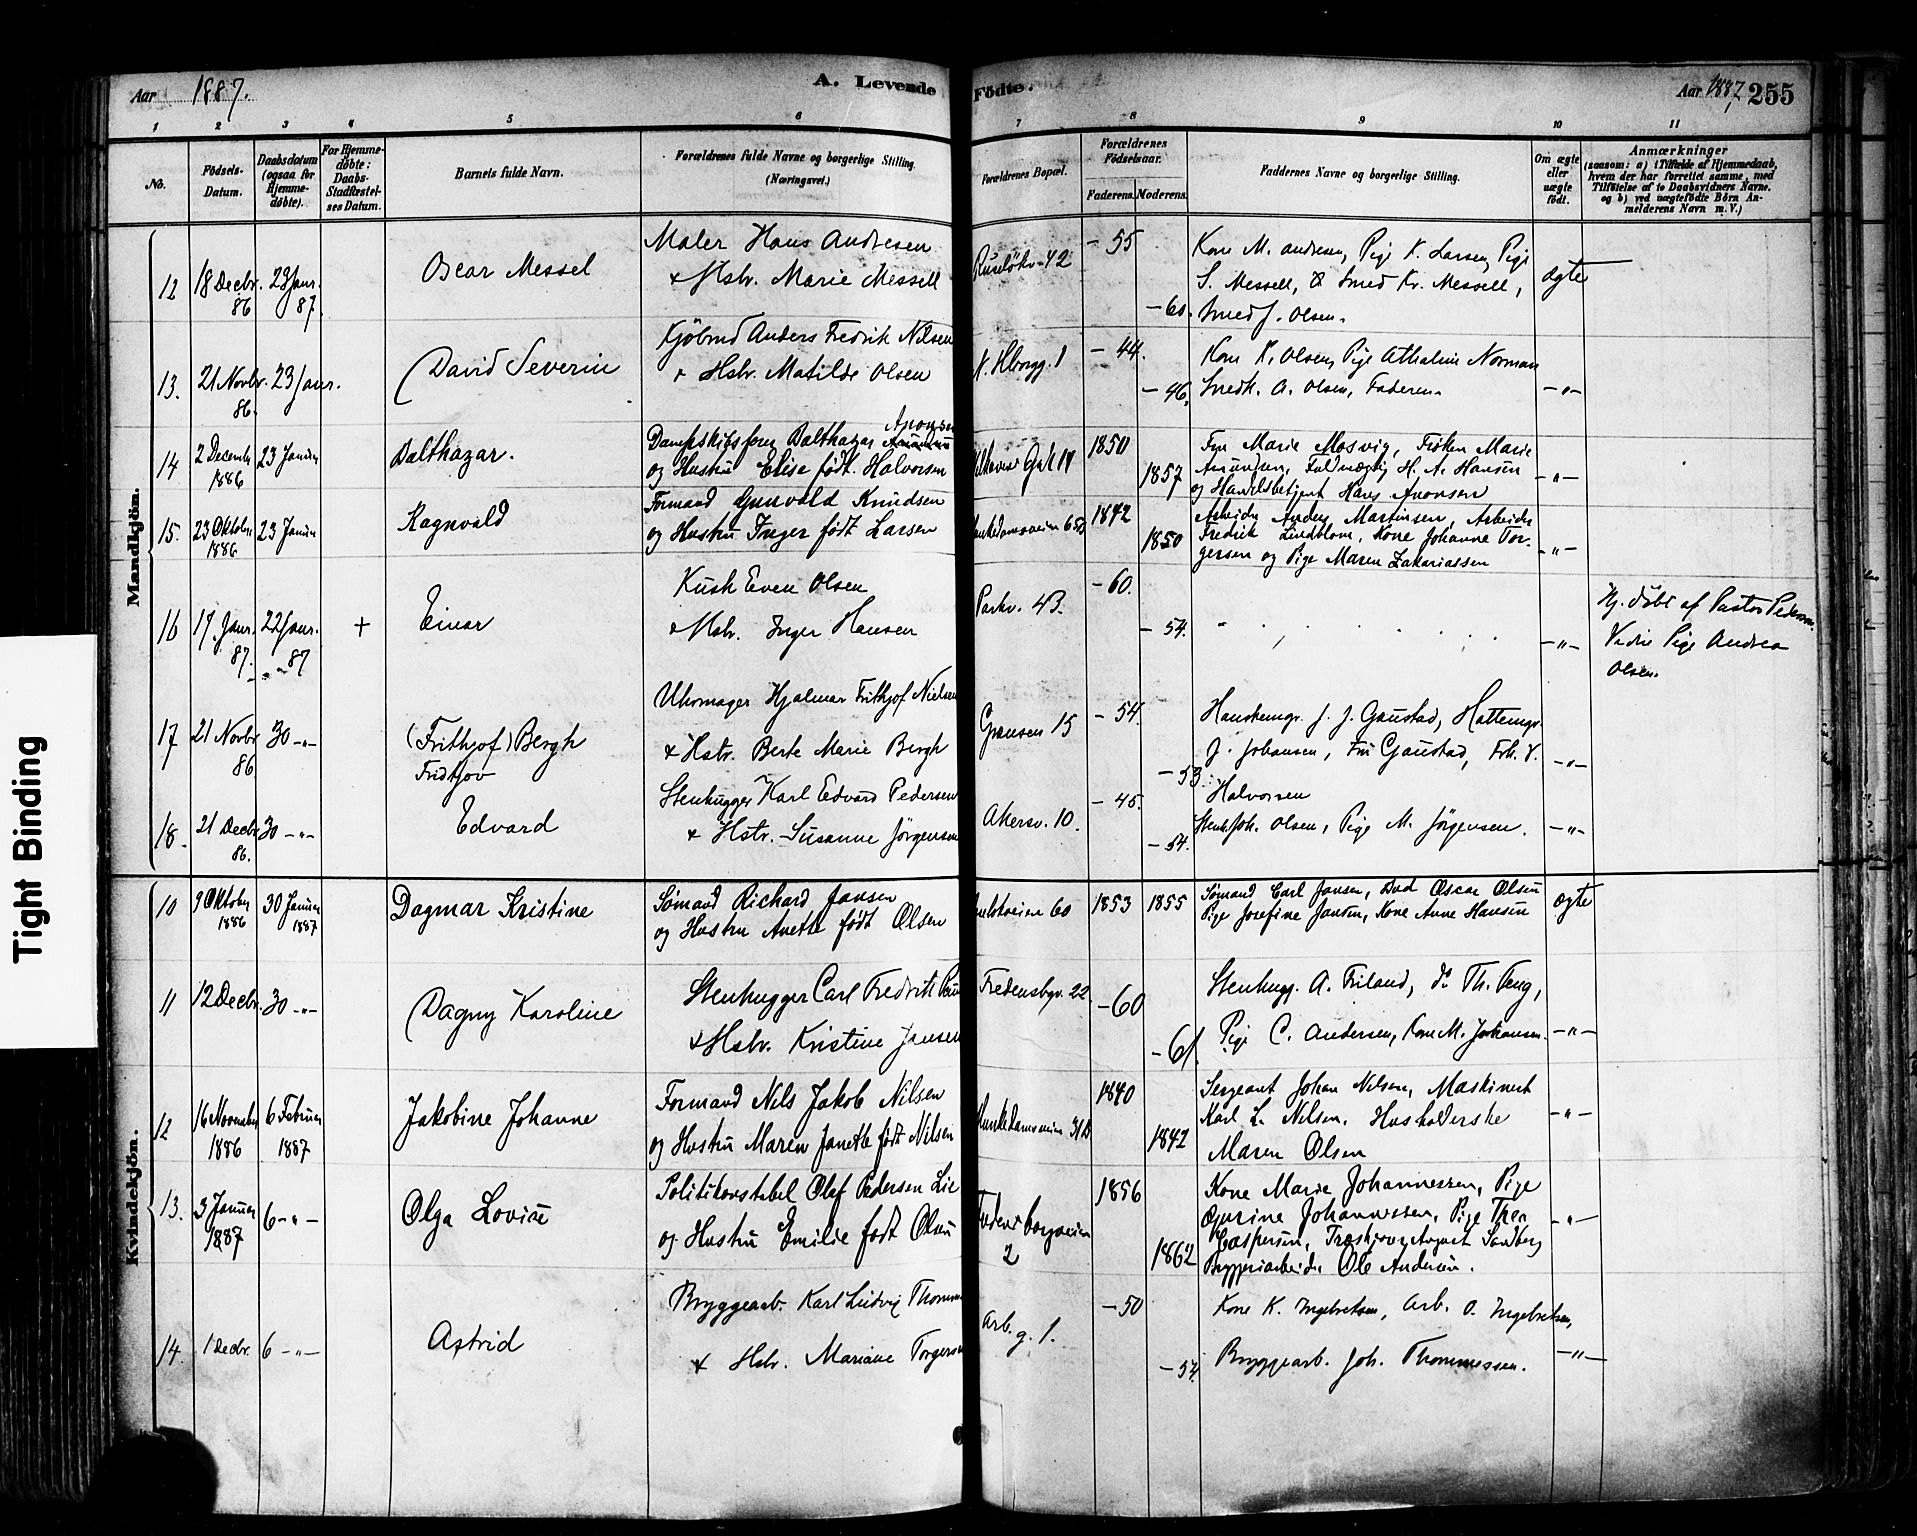 Aar 1887.
A. Levende Födte.
Aar 1887, 255
1 2 3 4 5 6 7 8 9 10 11
No.
Födsels-Datum.
Daabsdatum (ogsaa for Hjemme-døbte).
For Hjemme-døbte: Daabs-Stadfæstel-ses Datum.
Barnets fulde Navn.
Forældrenes fulde Navne og borgerlige Stilling. (Næringsvei.)
Forældrenes Bopæl.
Forældrenes Födselsaar.
Faderens. Moderens.
Faddernes Navne og borgerlige Stilling.
Om ægte eller uægte født.
Anmærkninger
(saasom: a) i Tilfælde af Hjemmedaab, hvem der har forrettet samme, med Tilføielse af to Daabsvidners Navne. og b) ved uægtefødte Börn An-melderens Navn m. V.)
Mandkjön.
12 18 Decbr. 86 23 Janr. 87. Oscar Messel
Maler Hans Andresen
& Hstr. Marie Messell
Ruseløkv. 42 - 55 - 60.
Kone M. Andresen, Pige K. Larsen, Pige
S. Messell, & Smed Kr. Messell,
Smed J. Olsen.
ægte
13. 21 Novbr. 86. 23 Janr. (David Severin
Kjöbmd Anders Fredrik Nilsen
& Hstr. Matilde Olsen
- 44. - 46.
Kone K. Olsen, Pige Athaline Norman
Smedk. A. Olsen, Faderen.
-"-
14 2 Decemb 1886 23 Januar Balthazar.
Dampskibsfører Balthazar Aronsen
og Hustru Elise født Halvorsen
1850 1857
Fru Marie Mosvig, Frøken Marie
Amundsen, Fuldmægtig H. A. Hansen
og Handelsbetjent Hans Aronsen
-"-
15. 23 Oktober 1886 23 Januar Ragnvald
Formand Gunvald Knudsen
og Hustru Inger født Larsen
Munkedamsveien 65 1842 1850
Arbeider Anders Martinsen, Arbeider
Fredrik Lindblom, Kone Johanne Tor-
gersen og Pige Maren Zakariassen
-"-
16 17. Janr. 87. 22 Janr. 87 + Einar
Kusk Even Olsen
& Hstr. Inger Hansen
Parkv. 4B. - 60. - 54.
-"-
Hj. døbt af Pastor Pedersen.
Vidne Pige Andrea
Olsen.
17 21 Novbr 86 30 -"- (Frithjof) Bergh
Fridtjov
Uhrmager Hjalmar Frithjof Nielsen
& Hstr. Berte Marie Bergh
Grænsen 15 - 54. - 53.
Hanskemgr. J. J. Gaustad, Hattemgr.
J. Johansen, Fru Gaustad, Frk. V.
Halvorsen
-"-
18. 21 Decbr 86. 30 -"- Edvard
Stenhugger Karl Edvard Pedersen
& Hstr. Susanne Jörgensen
Akersv. 10. - 45. - 54.
Stenh. Joh. Olsen, Pige M. Jörgensen.
-"-
Kvindekjön.
10 9 Oktober 1886 30 Januar 1887 Dagmar Kristine
Sømand Richard Jansen
og Hustru Anette født Olsen
60 1853 1855
Sømand Carl Jansen, Bud Oscar Olsen
Pige Josefine Jansen, Kone Anne Hansen
ægte
11 12 Decbr. 30 -"- (Dagny Karoline
Stenhugger Carl Fredrik
& Hstr. Kristine Jansen
Fredensbgv. 22 - 60 - 61.
Stenhugg. A. Friland, do Th. Teng,
Pige C. Andersen, Kone M. Johansen.
-"-
12 16 November 1886 6 Februar 1887 Jakobine Johanne
Formand Nils Jakob Nilsen
og Hustru Maren Janette født Nilsen
Munkedamsveien 31B 1840 1842
Sergeant Johan Nilsen, Maskinist
Karl L. Nilsen, Husholderske
Maren Olsen
-"-
13. 3 Januar 1887 6 -"- Olga Lovise
Politikonstabel Olef Pedersen Lie
og Hustru Emilie født Olsen
Fredensborgveien 2 1856 1862
Kone Marie Johannessen, Pige
Gurine Johannessen, Pige Thea
Caspersen, Træskjærer August Sandberg
Bryggeriarbeider Ole Andersen.
-"-
14. 1 Decbr. 6 -"- Astrid
Bryggearb. Karl Ludvig Thommesen
& Hstr. Mariane Torgersen
Arb. g. 1. - 50 - 54.
Kone K. Ingebretsen, Arb. O. Ingebretsen,
Bryggearb. Joh. Thommessen.
-"-
Tight Binding